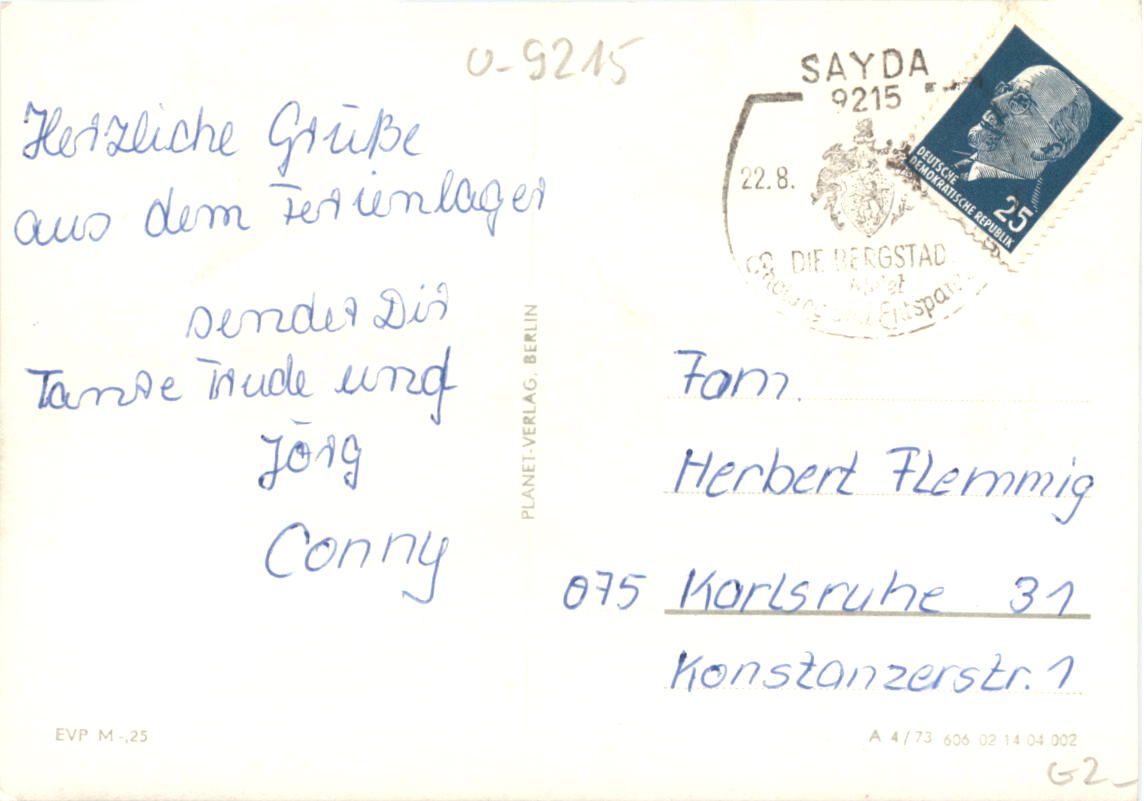 U-9215
SAYDA
9215
22.8.
DIE BERGSTAD
bietet
Erholung und Entspan
DEUTSCHE
DEMOKRATISCHE REPUBLIK
25
Herzliche Grüße
aus dem Ferienlager
sendet Dir
Tante Trude und
Jörg
Conny
PLANET-VERLAG, BERLIN
Fam.
Herbert Flemmig
075 Karlsruhe 31
Konstanzerstr. 1
EVP M -,25
A 4/73 606 02 14 04 002
G2-